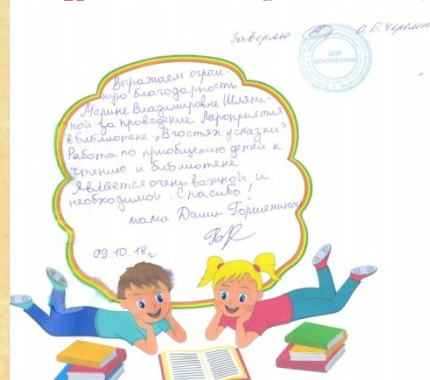 Заверяю:
ДЛЯ
ДОКУМЕНТОВ
Выражаем огром-
ную благодарность
Марине Владимировне Шляпи-
ной за проведение мароприятия
в библиотеке "В гостях у сказки".
Работа по приобщению детей к
чтению и библиотеке
является очень важной и
необходимой. Спасибо!
мама Даши
09.10.18г